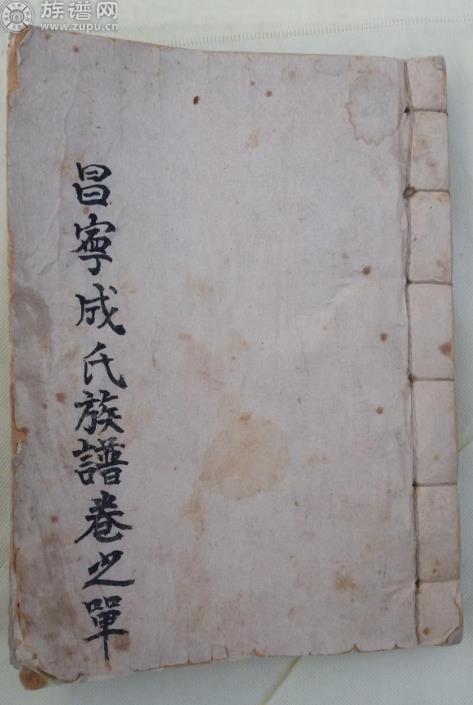 族谱网
www.zupu.cn
昌寧成氏族譜卷之單